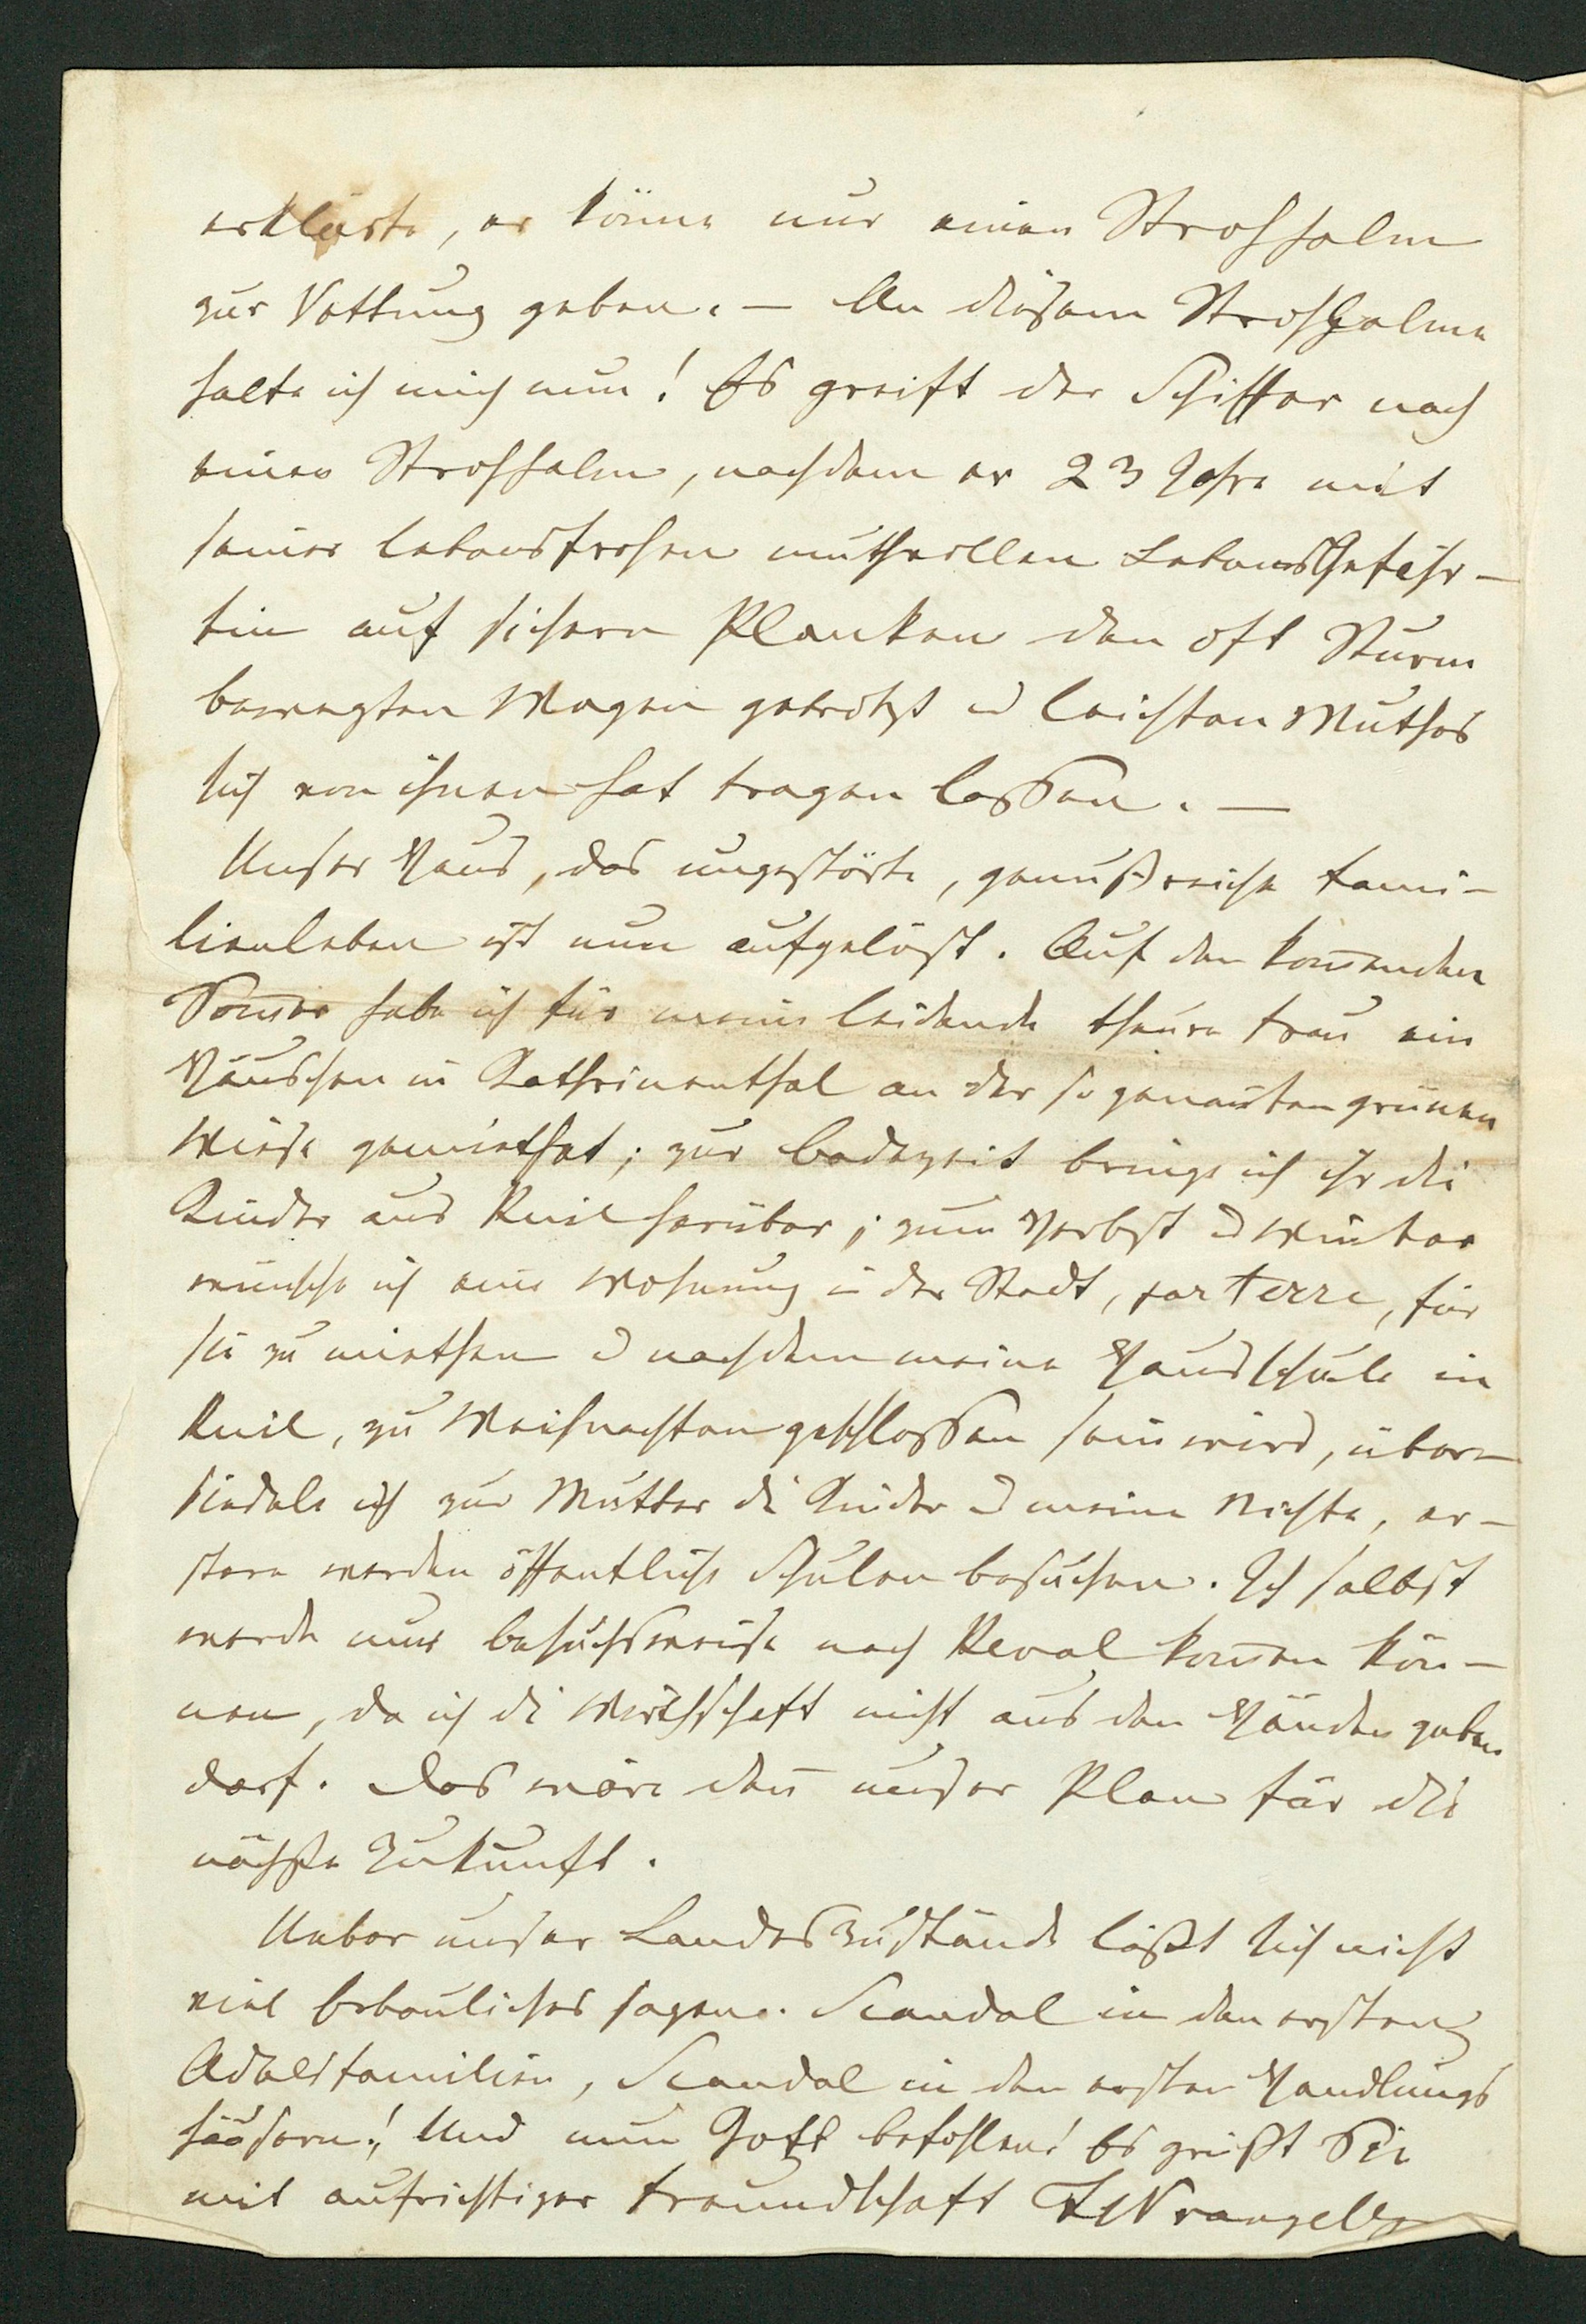 erklärte, er könne nur einen Strohhalm
zur Rettung geben. — An diesem Strohhalme
halte ich mich nun! Es greift der Schiffer nach
einen Strohhalm, nachdem er 23 Jahre mit
seiner lebensfrohen muthvollen Lebensgefähr-
tin auf sichern Planken den oft Sturm
bewegten Wogen getrotzt u leichten Muthes
sich von ihnen hat tragen lassen. —
Unser Haus, das ungestörte, genußreiche Fami-
lienleben ist nun aufgelöst. Auf den kom̄enden
Som̄er habe ich für meine leidende theure Frau ein
Häuschen in Kathrinenthal an der so genan̄ten grünen
Wiese gemiethet; zur Badezeit bringe ich ihr die
Kinder aus Ruil herüber; zum Herbst u Winter
wünsche ich eine Wohnung in der Stadt, parterre, für
sie zu miethen u nachdem meine Hausschule in
Ruil, zu Weihnachten geschlossen sein wird, über-
siedele ich zur Mutter di Kinder u meine Nichte, er-
stere werden öffentliche Schulen besuchen. Ich selbst
werde nur besuchsweise nach Reval kom̄en kön-
nen, da ich di Wirthschaft nicht aus den Händen geben
darf. Das wäre den̄ unser Plan für die
nächste Zukunft.
Ueber unser Landeszustände läßt sich nicht
viel Erbauliches sagen. Scandal in den ersten
Adelsfamilien, Scandal in den ersten Handlungs
häusern! Und nun Gott befohlen! Es grüßt Sie
mit aufrichtiger Freundschaft FWrangell